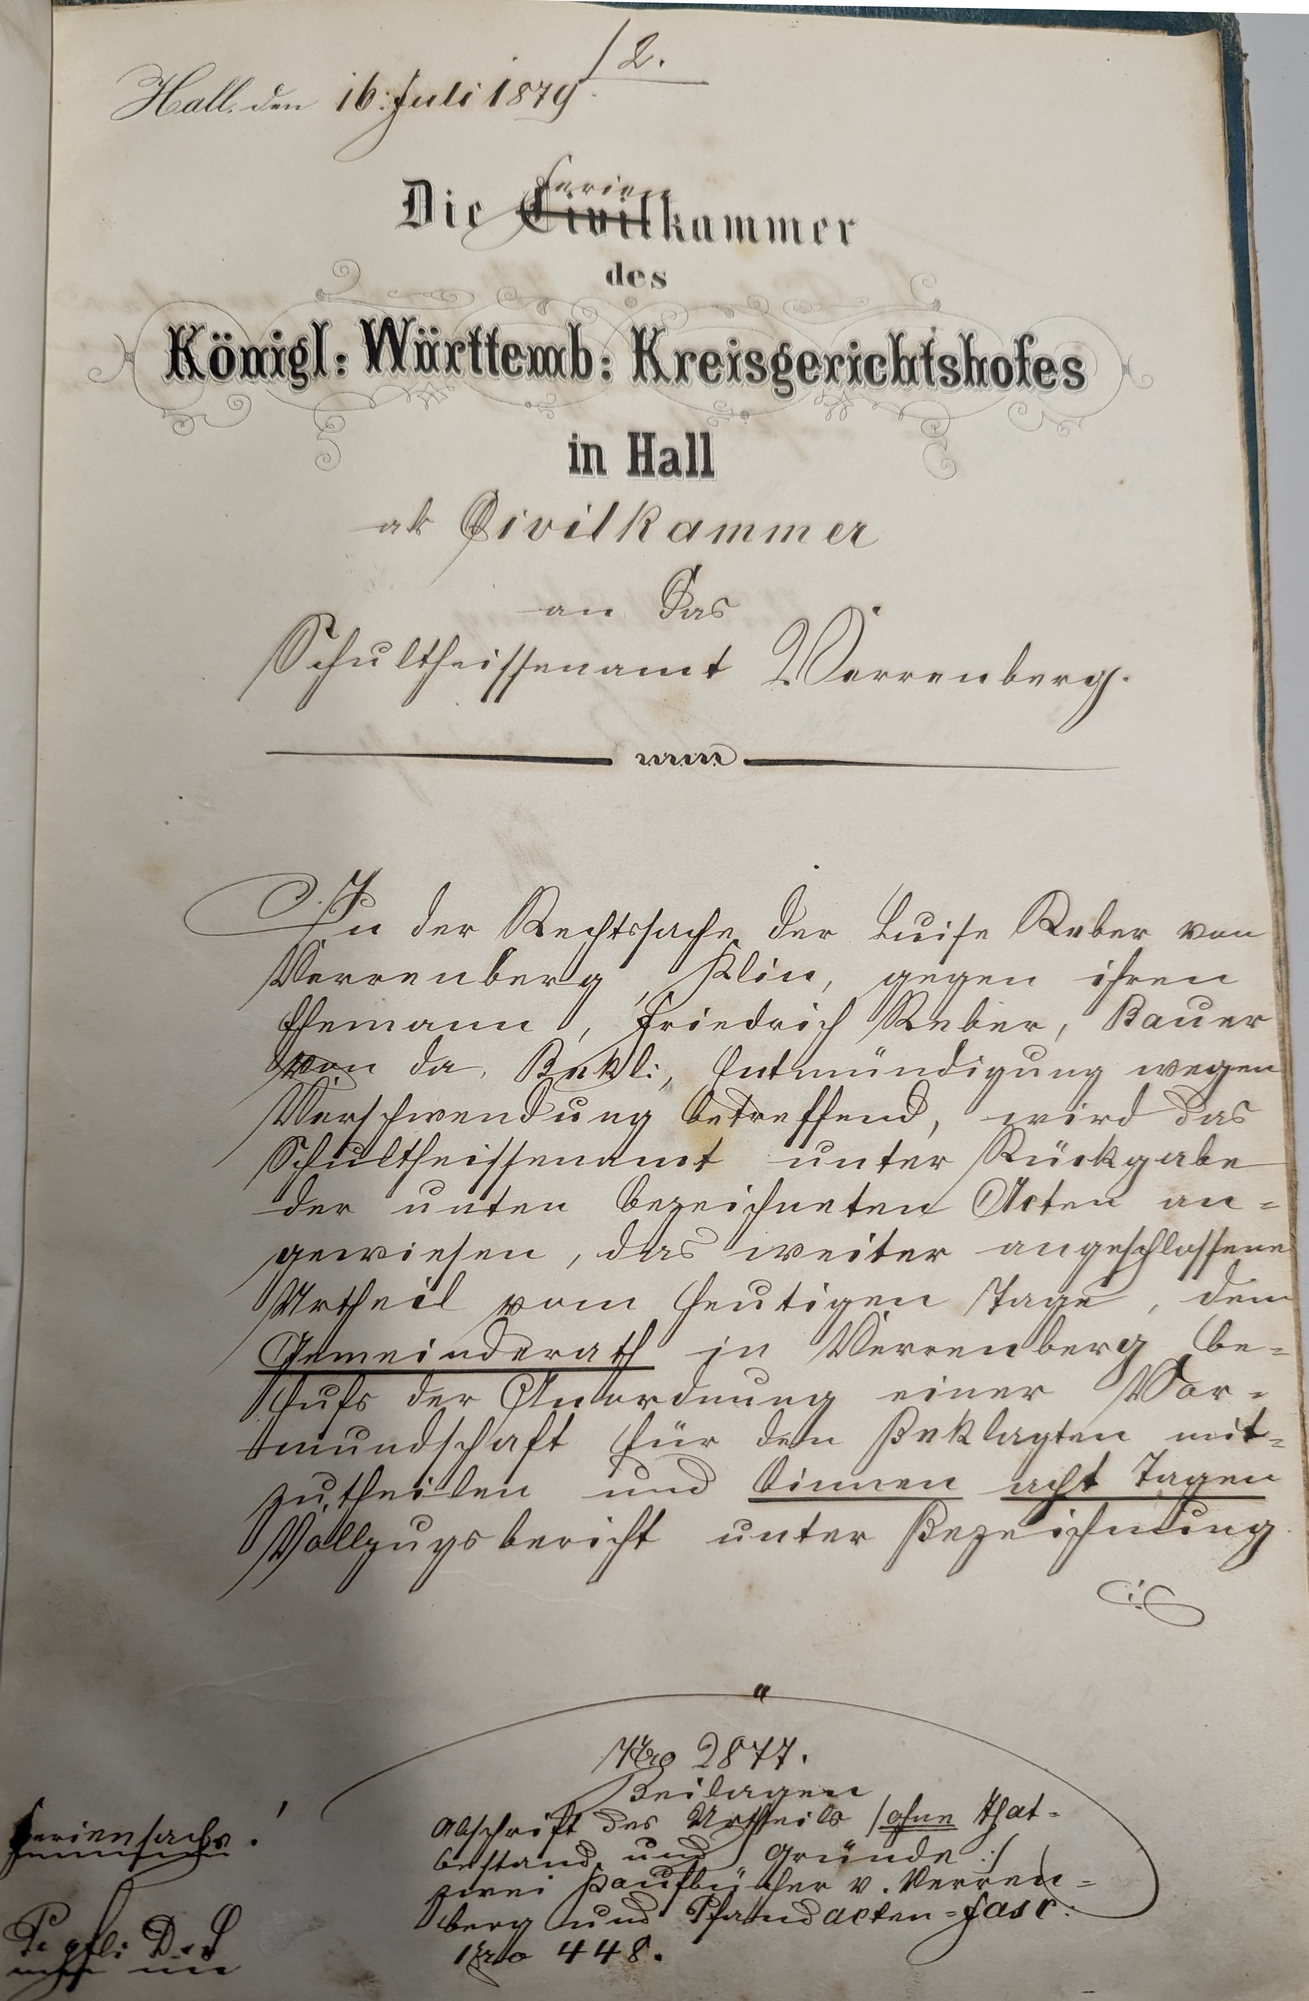 / 2.
Hall, den 16. Juli 1879.
Ferien
Die Civilkammer
des
Königl: Württemb: Kreisgerichtshofes
in Hall
als Civilkammer
an das
Schultheissenamt Verrenberg.
In der Rechtssache der Luise Reber von
Verrenberg, Klin, gegen ihren
Ehemann, Friedrich Reber, Bauer
von da, Bekl:, Entmündigung wegen
Verschwendung betreffend, wird das
Schultheissenamt unter Rückgabe
der unten bezeichneten Acten an=
gewiesen, das weiter angeschlossene
Urtheil vom heutigen Tage, dem
Gemeinderath in Verrenberg be=
hufs der Anordnung einer Vor=
mundschaft für den Beklagten mit=
zutheilen und binnen acht Tagen
Vollzugsbericht unter Bezeichnung
Nro 2877.
Beilagen
Abschrift des Urtheils /: ohne That=
bestand und Gründe :/
zwei Kaufbücher v. Verren=
berg und Pfandacten=Fasc:
Nro 448.
Feriensache!